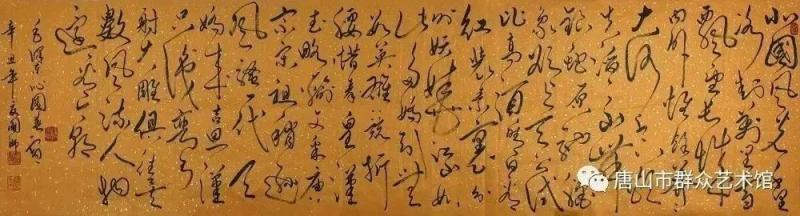 北國風光千里
冰封萬里雪
飄望長城
内外惟餘莽
大河上下
失滔滔山舞
銀蛇原馳蠟
象欲與天公試
比高須晴日看
紅裝素裹分
外妖嬈江山如
此多嬌引無
數英雄競折
腰惜秦皇漢
武略輸文采唐
宗宋祖稍遜
風騷一代天
驕成吉思漢
只識彎弓
射大雕俱往矣
數風流人物
還看今朝
毛澤東沁園春雪
辛丑年
唐山市群众艺术馆